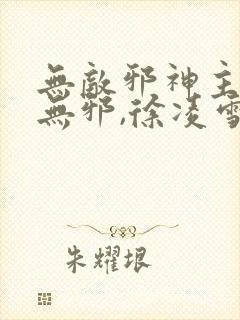 無敵邪神主
無邪,徐凌雪
朱耀垠